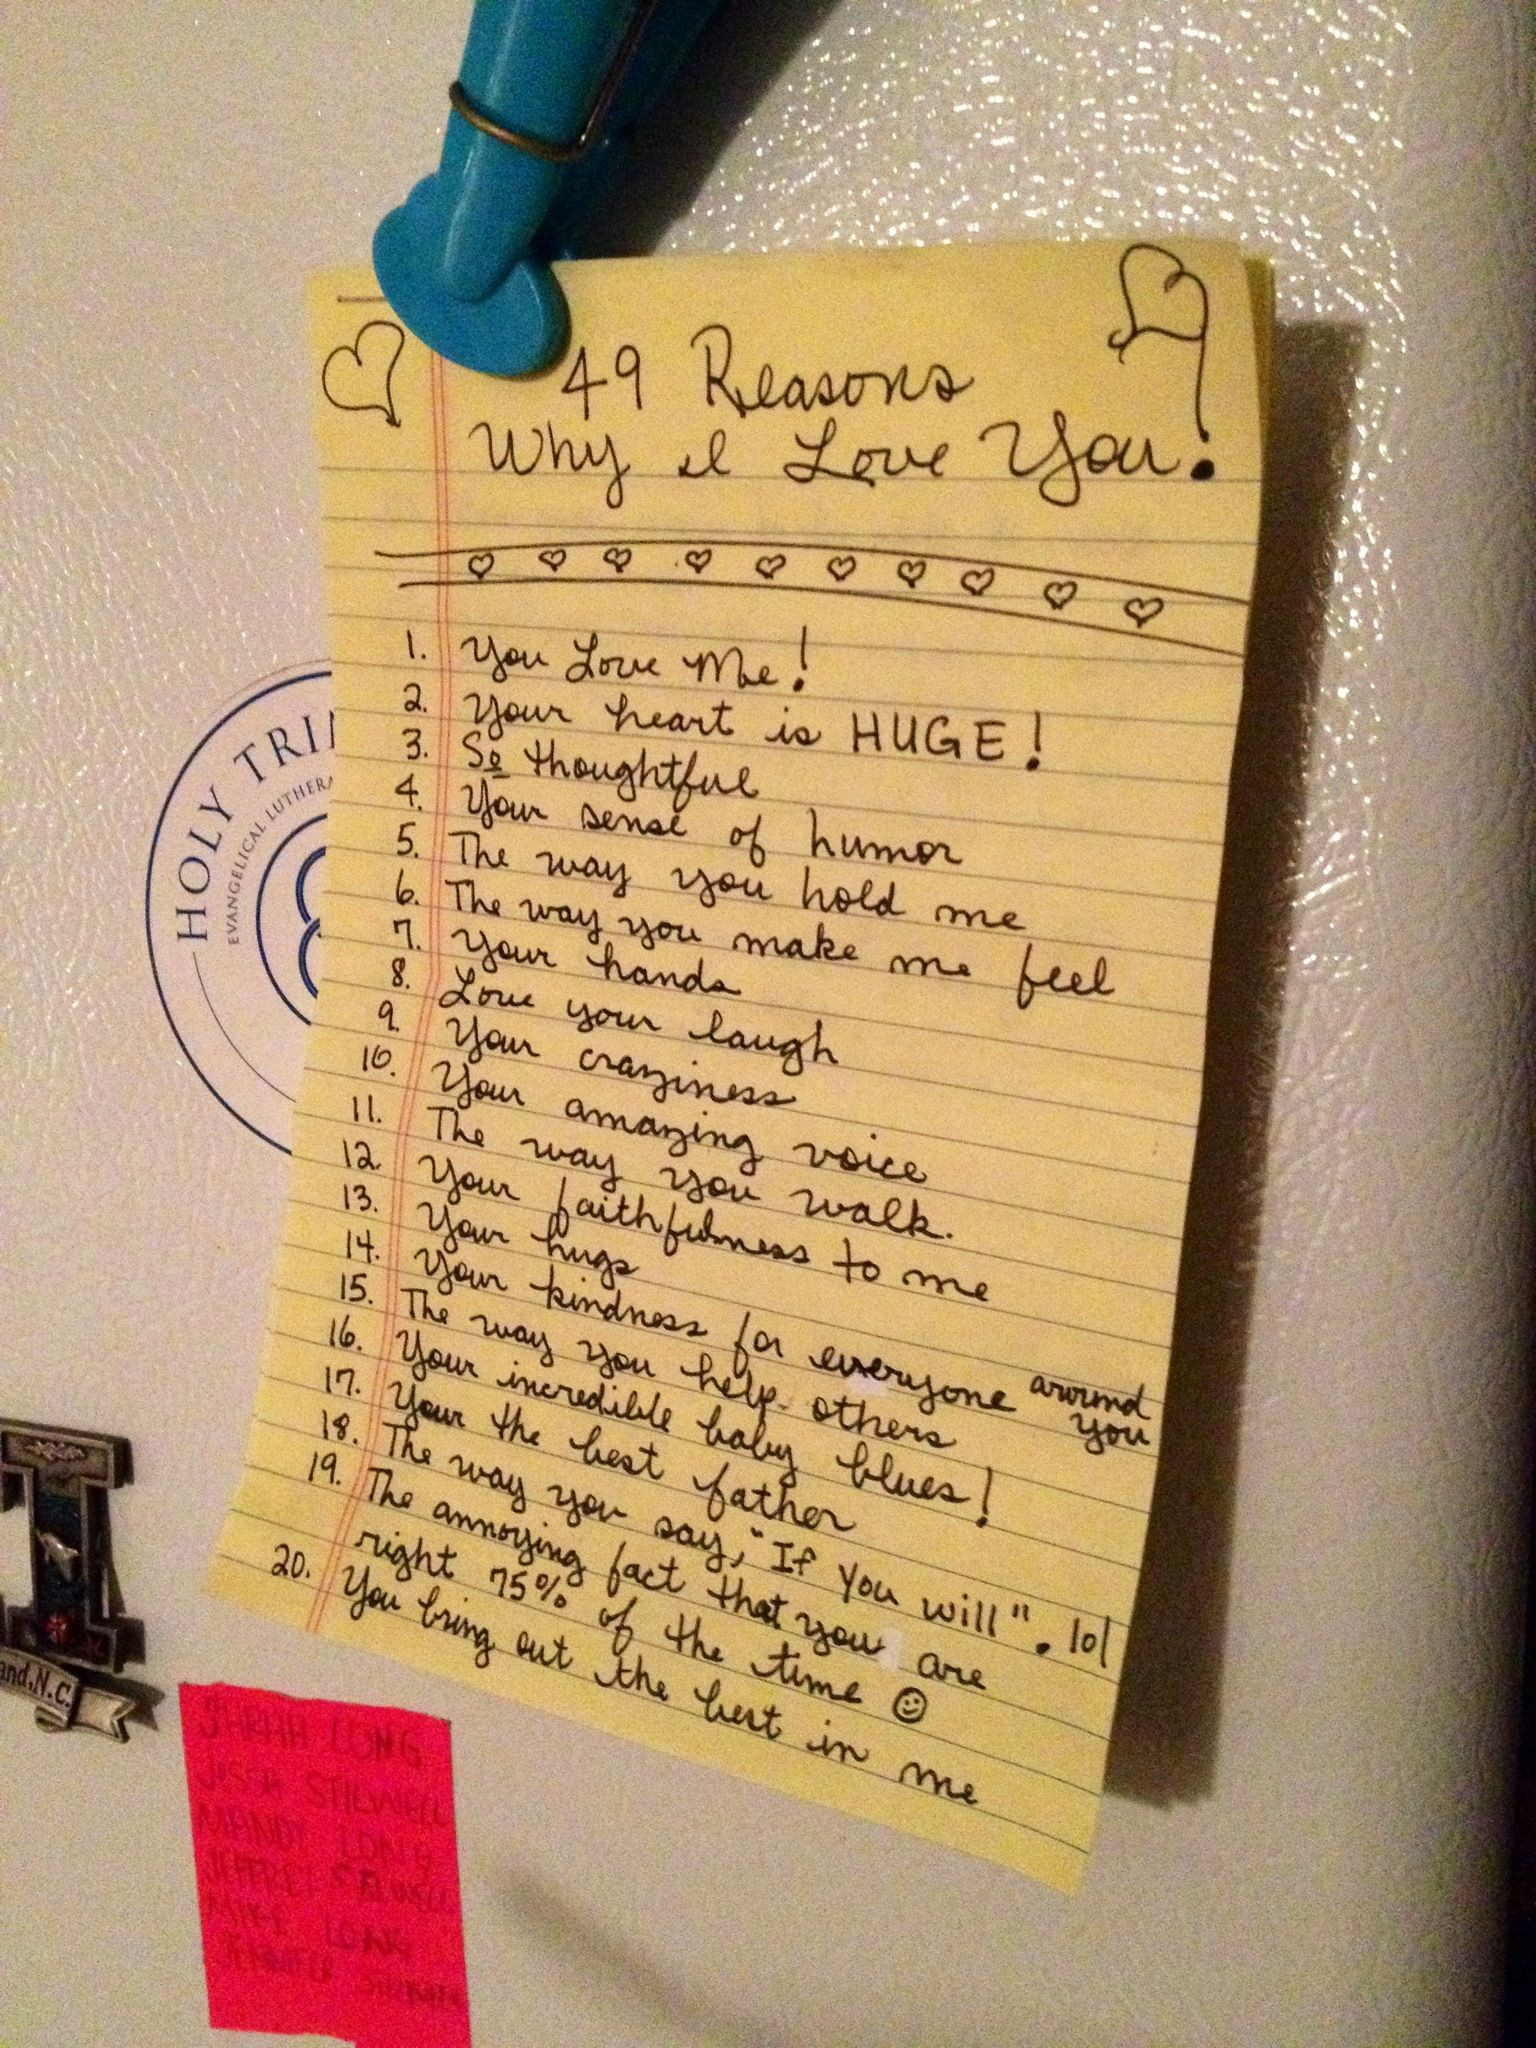 49 Reasons
Why I Love You!
1. You Love Me!
2. Your heart is HUGE!
3. So thoughtful
4. Your sense of humor
5. The way you hold me
6. The way you make me feel
7. Your hands
8. Love your laugh
9. Your craziness
10. Your amazing voice
11. The way you walk.
12. Your faithfulness to me
13. Your hugs
14. Your kindness for everyone around
you
15. The way you help others
16. Your incredible baby blues!
17. Your the best father
18. The way you say, "If you will". lol
19. The annoying fact that you are
right 75% of the time
20. You bring out the best in me
HOLY TRI
EVANGELICAL LUTHERA
and, N.C.
SARAH LONG
STILWELL
MANDY LONG
MIKE LONG